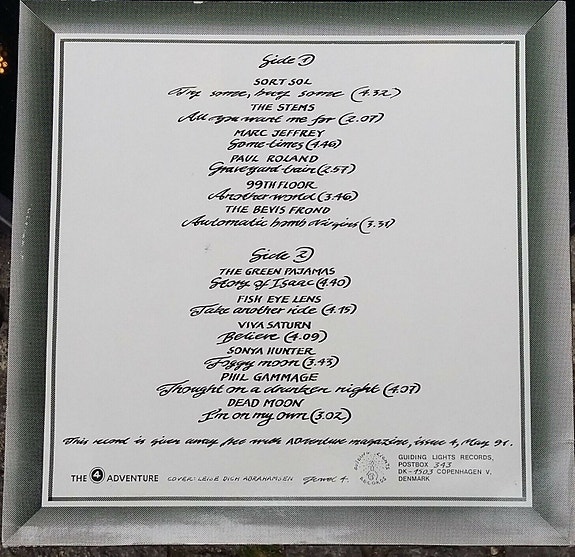 Side 1
SORT SOL
Try some, buy some (4.32)
THE STEMS
All you want me for (2.07)
MARC JEFFREY
Some-times (4.46)
PAUL ROLAND
Graveyard-train (2.57)
99TH FLOOR
Another world (3.46)
THE BEVIS FROND
Automatic bomb virgins (3.31)
Side 2
THE GREEN PAJAMAS
Story of Isaac (4.40)
FISH EYE LENS
Take another ride (4.15)
VIVA SATURN
Believe (4.09)
SONYA HUNTER
Foggy moon (3.43)
PHIL GAMMAGE
Thought on a drunken night (4.07)
DEAD MOON
I'm on my own (3.02)
This record is given away free with ADventure magazine, issue 4, May 91.
THE 4 ADVENTURE COVER: LEISE DICH ABRAHAMSEN
GUIDING LIGHTS RECORDS
GUIDING LIGHTS RECORDS,
POSTBOX 343
DK-1503 COPENHAGEN V,
DENMARK